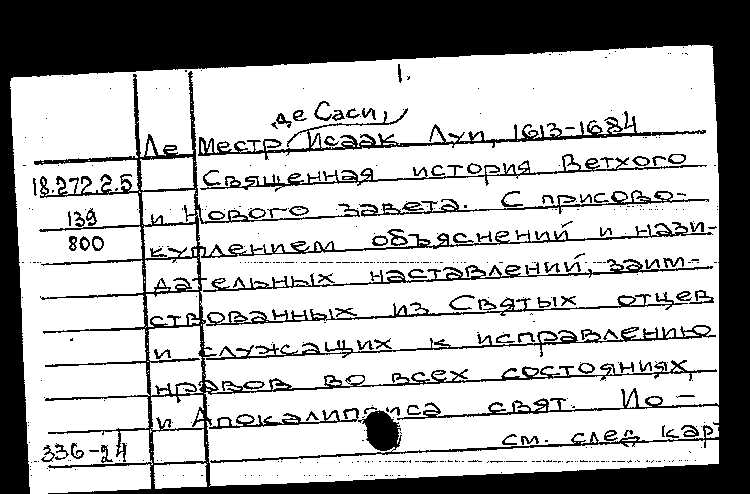 1.
де Саси,
Ле Местр, Исаак Луи, 1613-1684
18.272.2.5 Священная история Ветхого
139 и Нового завета. С присово-
800 куплением объяснений и нази-
дательных наставлений, заим-
ствованных из Святых отцев
и служащих к исправлению
нравов во всех состояниях,
и Апокалипсиса свят. Ио-
336-24 см. след. карт